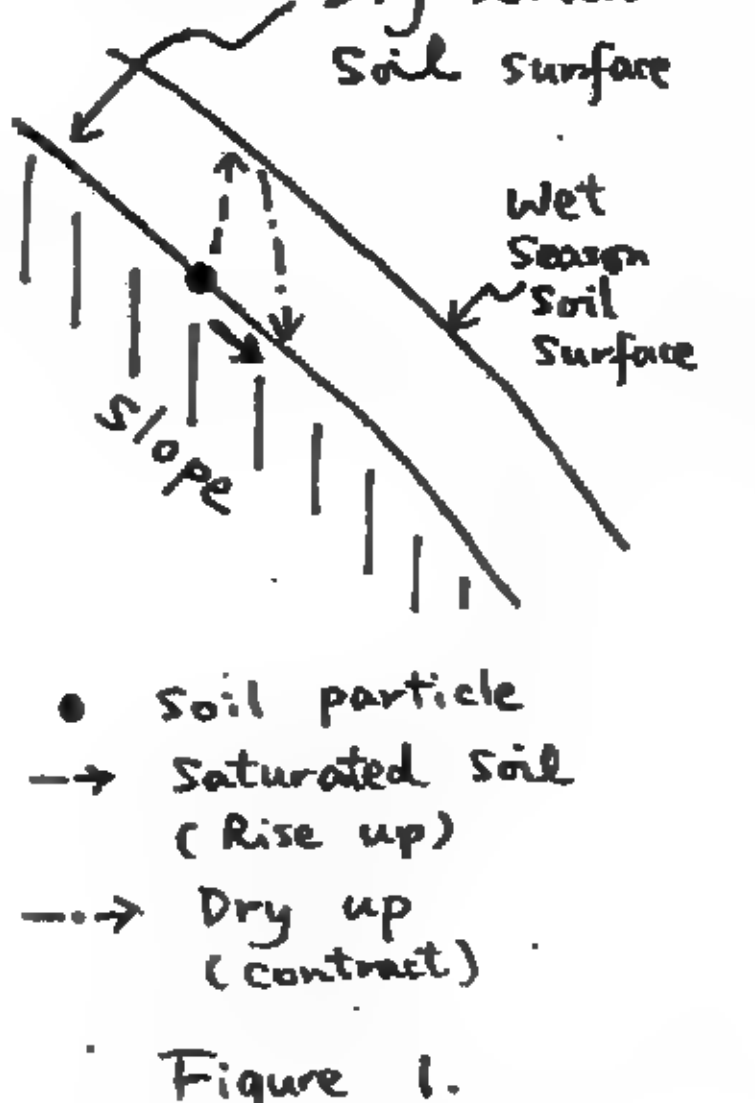 Soil surface
Wet
Season
Soil
Surface
Slope
Soil particle
Saturated soil
(Rise up)
Dry up
(contract)
Figure 1.